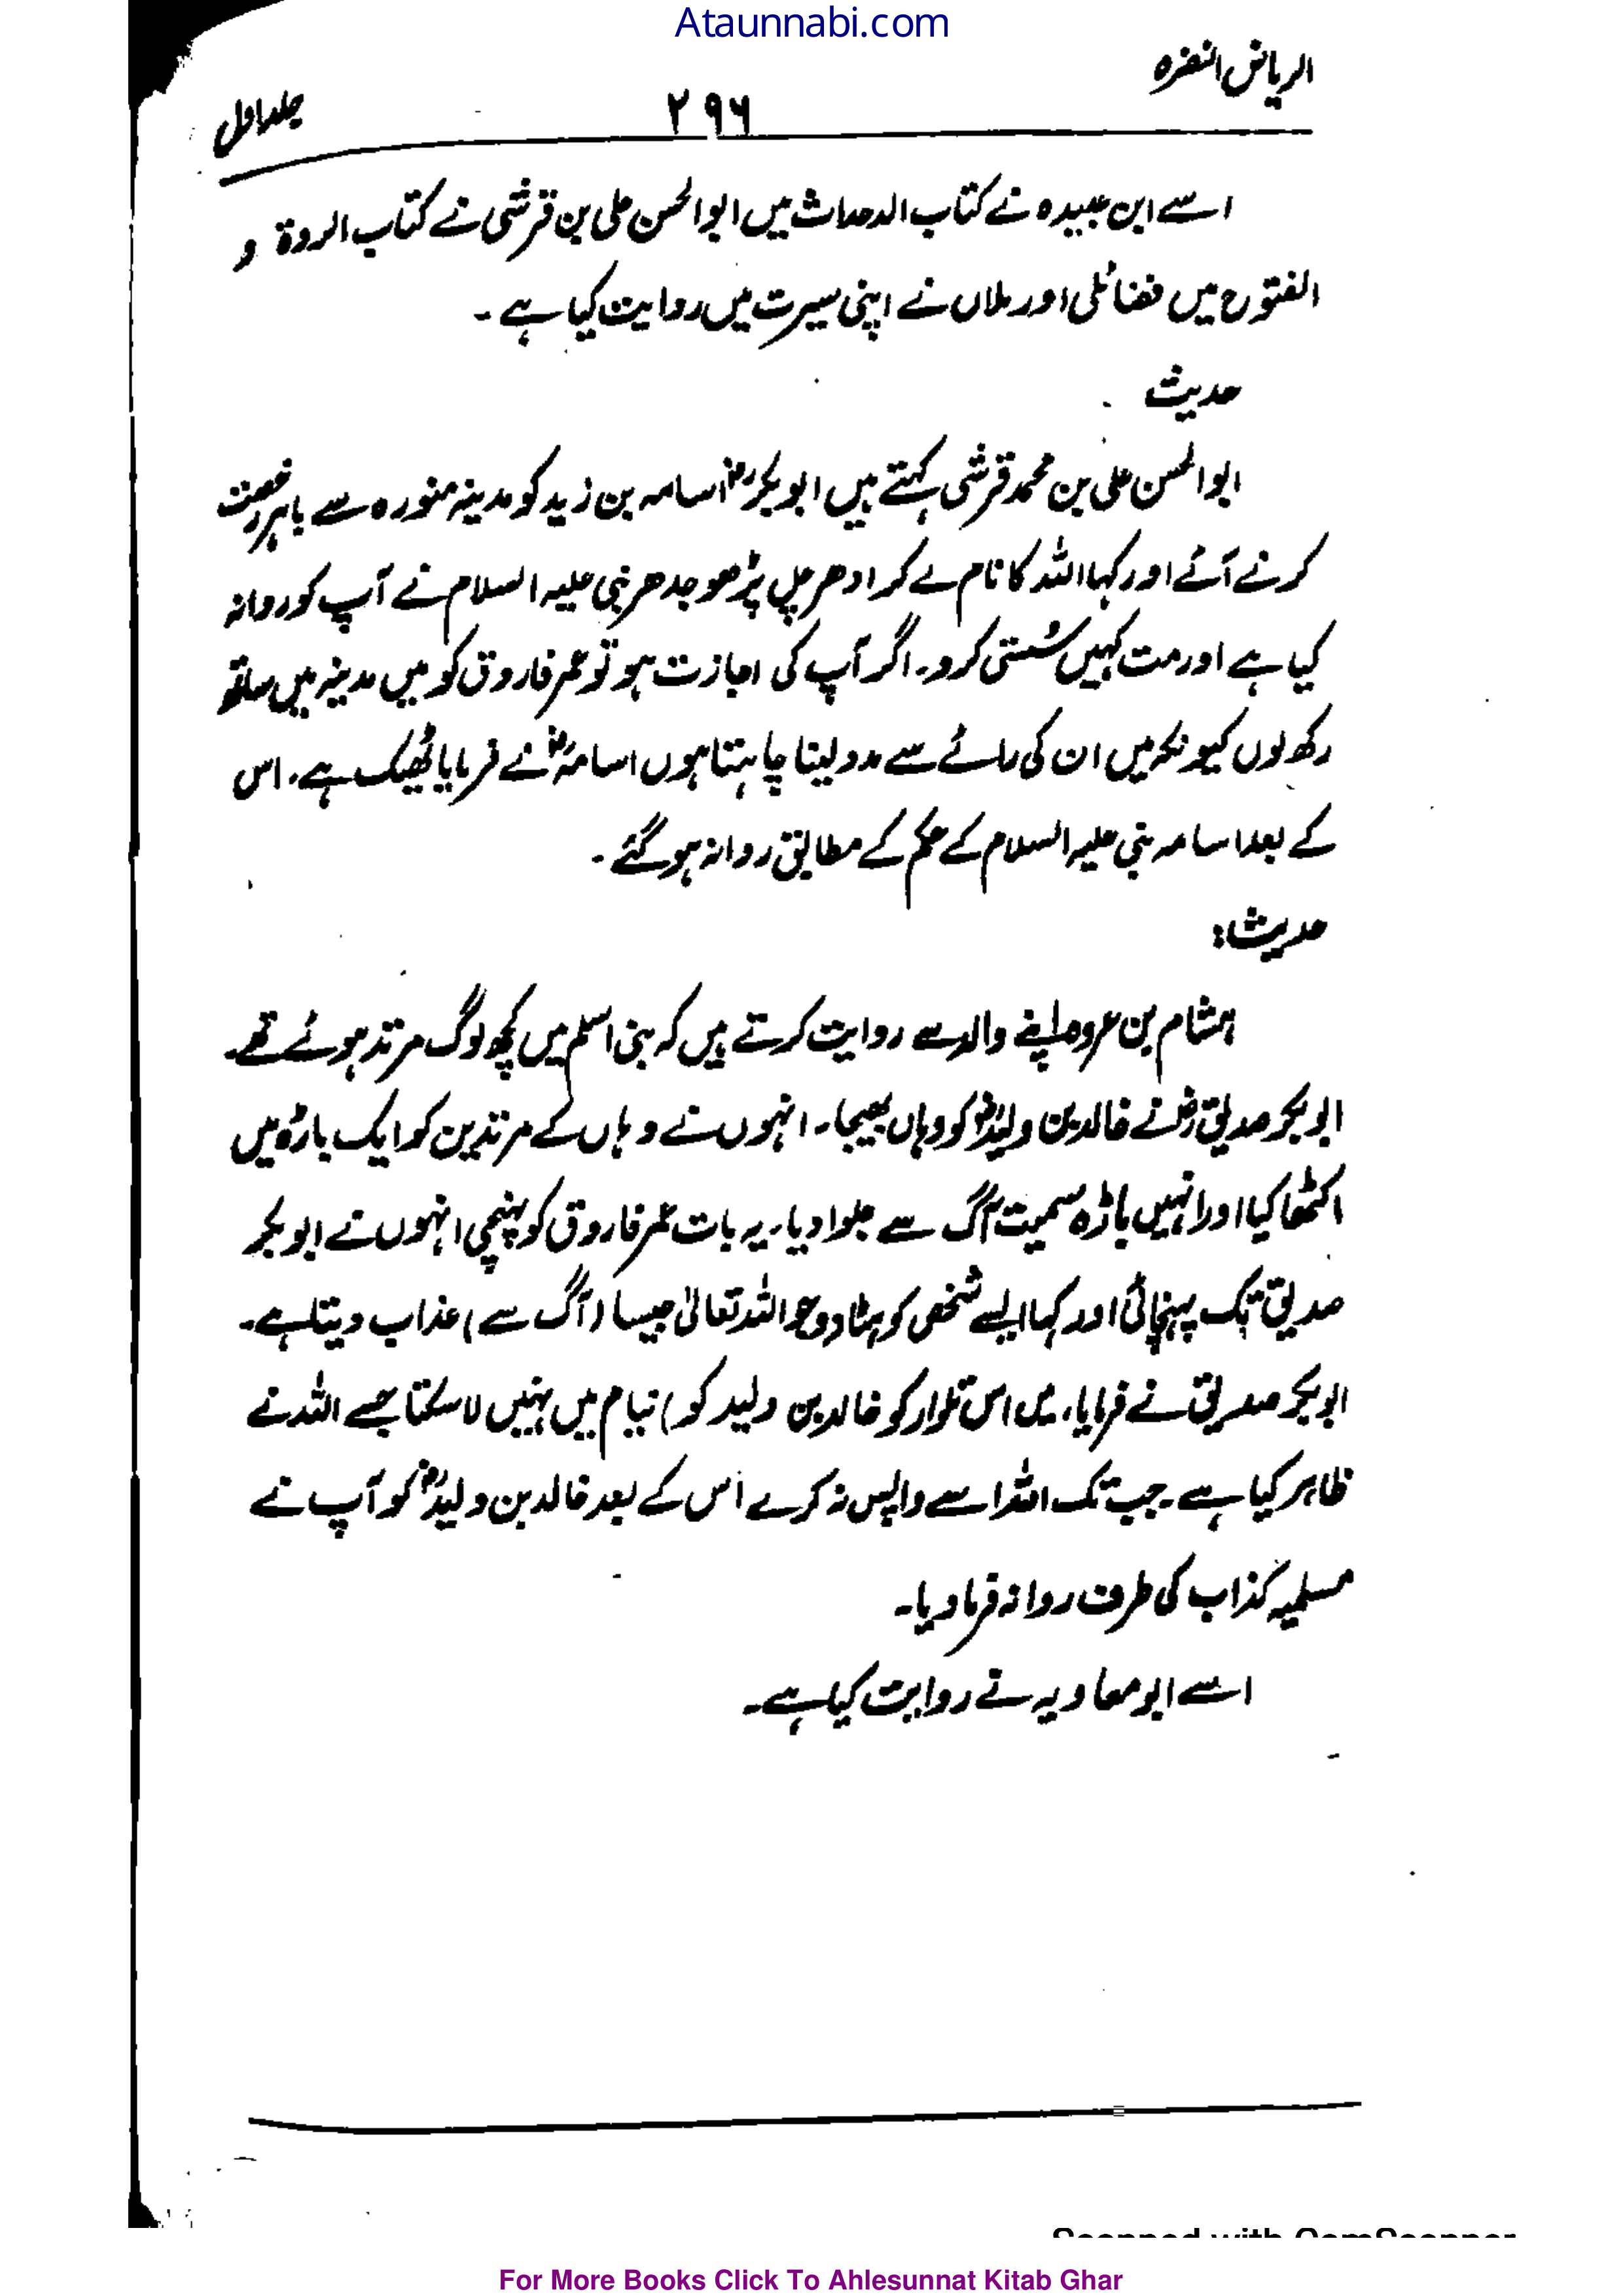 Ataunnabi.com
الریاض النضرہ
۲۹۶
جلد اول
اسے ابن عبیدہ نے کتاب الاحداث میں ابوالحسن علی بن قرشی نے کتاب الردۃ و
الفتوح میں فضائلی اور ملاں نے اپنی سیرت میں روایت کیا ہے ۔
حدیث
ابوالحسن علی بن محمد قرشی کہتے ہیں ابوبکرؓ اسامہ بن زید کو مدینہ منورہ سے باہر رخصت
کرنے آئے اور کہا اللہ کا نام لے کر ادھر چل پڑھو جدھر نبی علیہ السلام نے آپ کو روانہ
کیا ہے اور مت کہیں سُستی کرو۔ اگر آپ کی اجازت ہو تو عمر فاروق کو میں مدینہ میں ساتھ
رکھ لوں کیونکہ میں ان کی رائے سے مدد لینا چاہتا ہوں اسامہؓ نے فرمایا ٹھیک ہے ۔ اس
کے بعد اسامہ نبی علیہ السلام کے حکم کے مطابق روانہ ہو گئے ۔
حدیث:
ہشام بن عروہ اپنے والد سے روایت کرتے ہیں کہ بنی اسلم میں کچھ لوگ مرتد ہوئے تھے۔
ابوبکر صدیقؓ نے خالد بن ولیدؓ کو وہاں بھیجا۔ انہوں نے وہاں کے مرتدین کو ایک باڑہ میں
اکٹھا کیا اور انہیں باڑہ سمیت آگ سے جلوا دیا۔ یہ بات عمر فاروق کو پہنچی انہوں نے ابوبکر
صدیق تک پہنچائی اور کہا ایسے شخص کو ہٹا دو جو اللہ تعالیٰ جیسا (آگ سے) عذاب دیتا ہے۔
ابوبکر صدیق نے فرمایا، میں اس تلوار کو خالد بن ولید کو) نیام میں نہیں لا سکتا جسے اللہ نے
ظاہر کیا ہے ۔ جب تک اللہ اسے واپس نہ کرے اس کے بعد خالد بن ولیدؓ کو آپ نے
مسلمیہ کذاب کی طرف روانہ فرما دیا۔
اسے ابو معاویہ نے روایت کیا ہے۔
Scanned with CamScanner
For More Books Click To Ahlesunnat Kitab Ghar